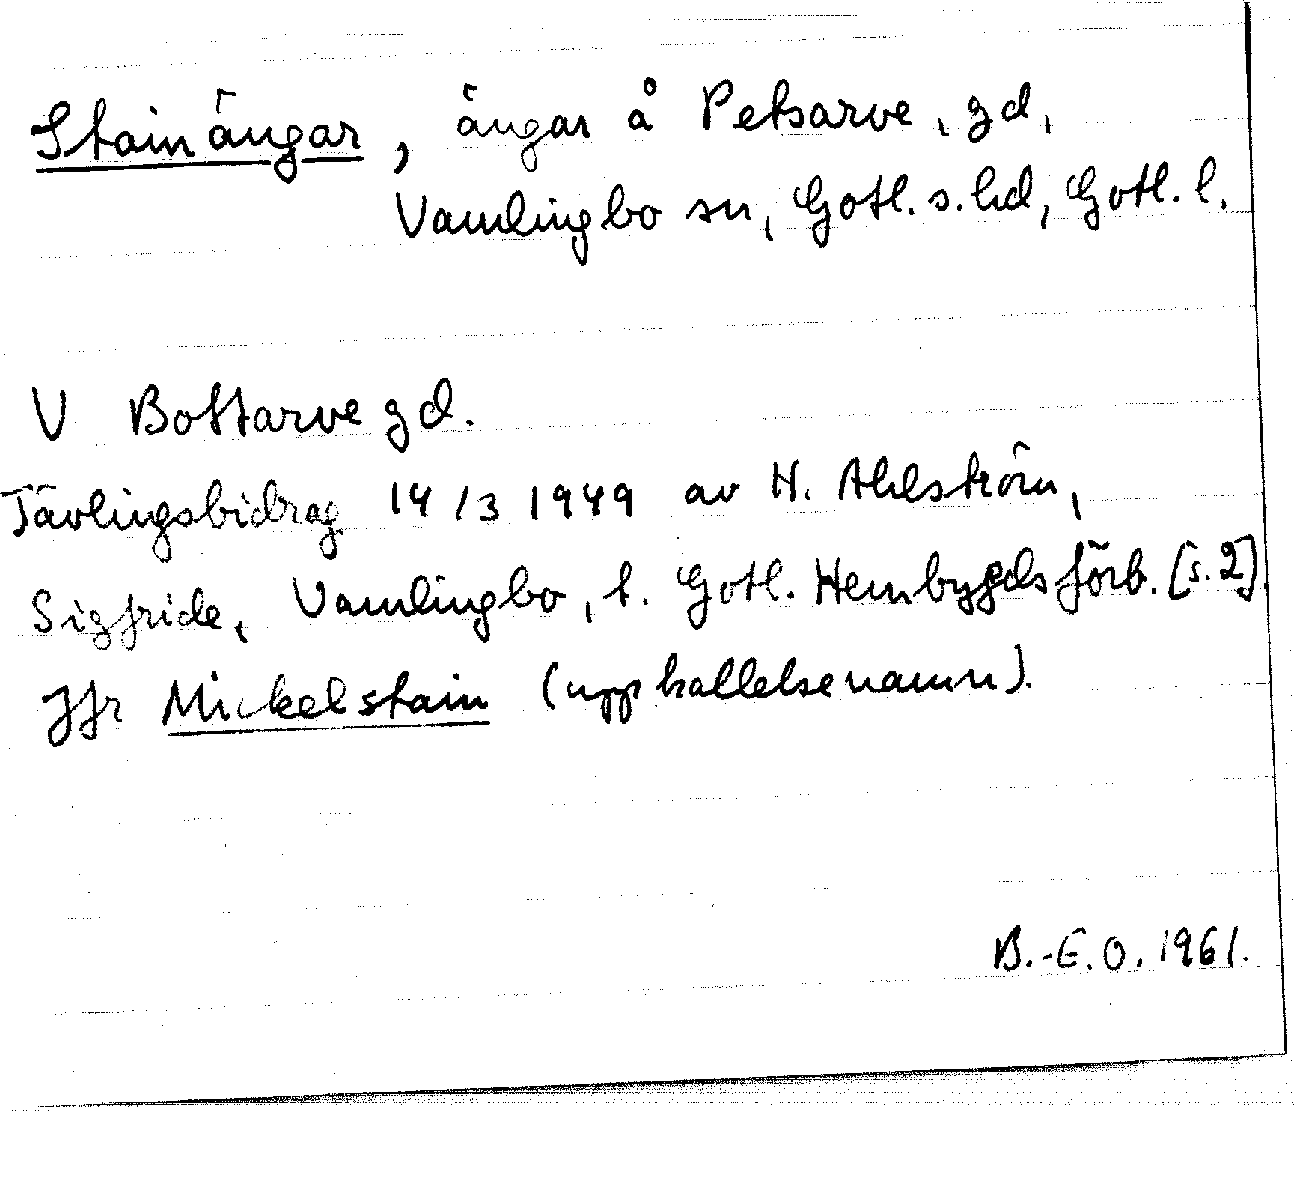 Stainängar, ängar å Petsarve, gd,
Vamlingbo sn, Gotl. s. hd, Gotl. l.
V Bottarve gd.
Tävlingsbidrag 14/3 1949 av H. Ahlström,
Sigfride, Vamlingbo, t. Gotl. Hembygdsförb. [s. 2].
Jfr Mickelstain (uppkallelsenamn).
B.-E.O. 1961.